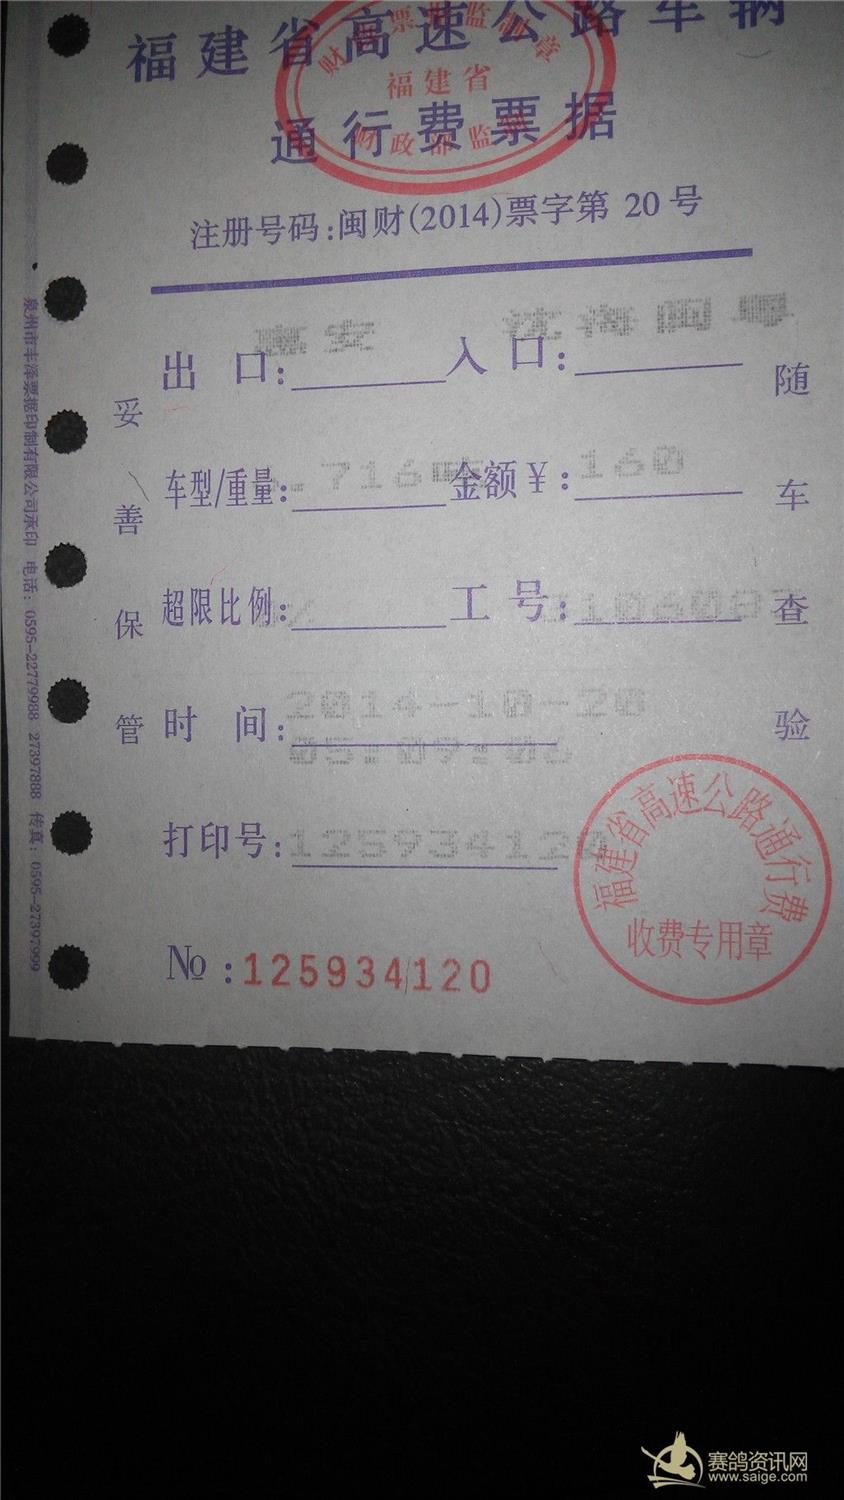 福建省高速公路车辆
通行费票据
福建省
财政部监制
注册号码:闽财(2014)票字第 20 号
出 口: 惠安 入 口: 沈海闽粤
车型/重量: .716吨 金额¥: 160
超限比例: 工 号:
时 间: 2014-10-20
05:09:06
打印号: 125934120
№:125934120
妥善保管
随车查验
福建省高速公路通行费
收费专用章
泉州市丰泽票据印制有限公司承印 电话: 0595-22779988 27397888 传真: 0595-27397999
赛鸽资讯网
www.saige.com